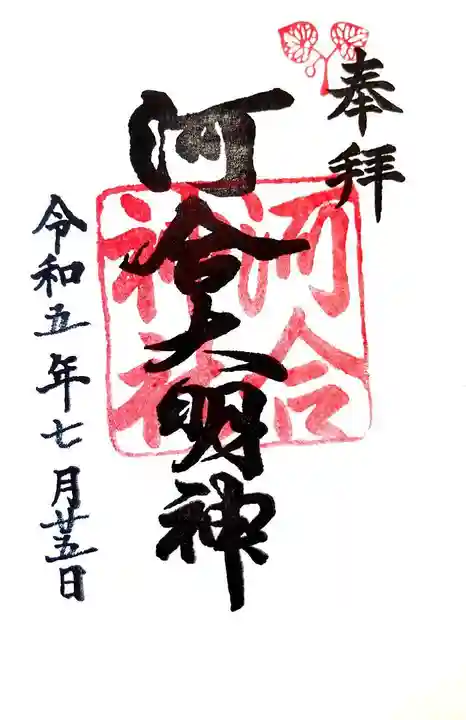 奉拝
河合大明神
河合
神社
令和五年七月廿五日